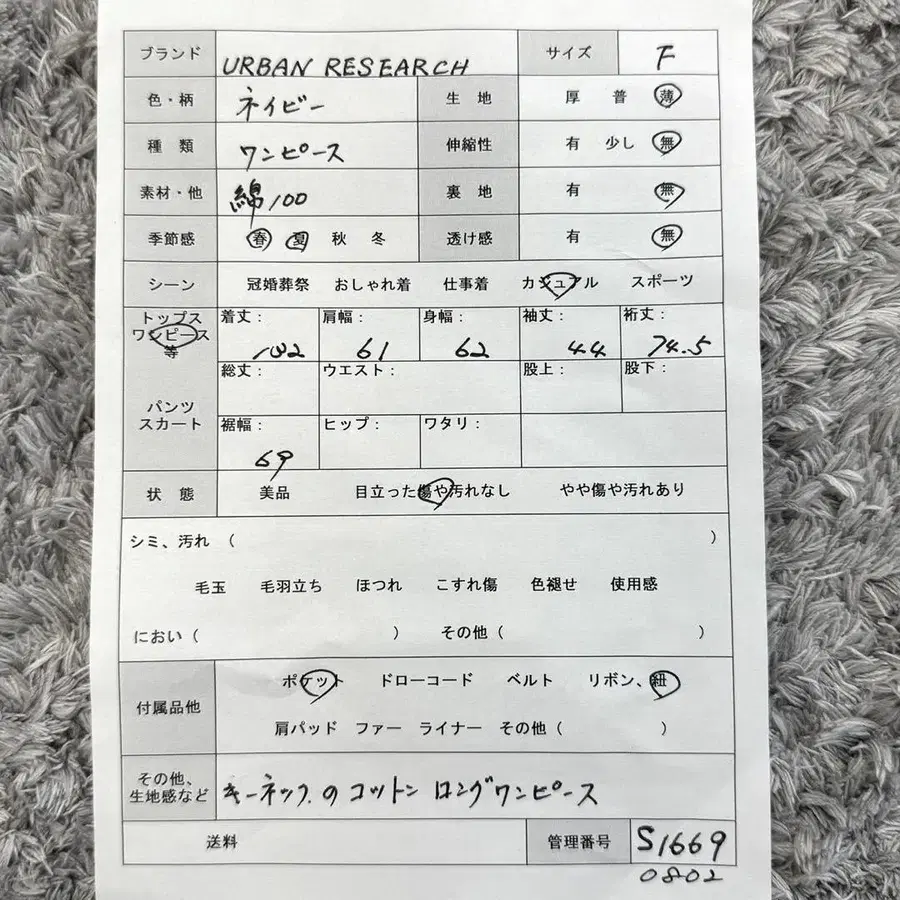 ブランド URBAN RESEARCH サイズ F
色・柄 ネイビー 生地 厚 普 薄
種類 ワンピース 伸縮性 有 少し 無
素材・他 綿100 裏地 有 無
季節感 春 夏 秋 冬 透け感 有 無
シーン 冠婚葬祭 おしゃれ着 仕事着 カジュアル スポーツ
トップス 着丈: 肩幅: 身幅: 袖丈: 裄丈:
ワンピース
等 102 61 62 44 74.5
総丈: ウエスト: 股上: 股下:
パンツ
スカート 裾幅: ヒップ: ワタリ:
69
状態 美品 目立った傷や汚れなし やや傷や汚れあり
シミ、汚れ ( )
毛玉 毛羽立ち ほつれ こすれ傷 色褪せ 使用感
におい ( ) その他 ( )
付属品他 ポケット ドローコード ベルト リボン、紐
肩パッド ファー ライナー その他 ( )
その他、
生地感など キーネックのコットンロングワンピース
送料 管理番号 S1669
0802